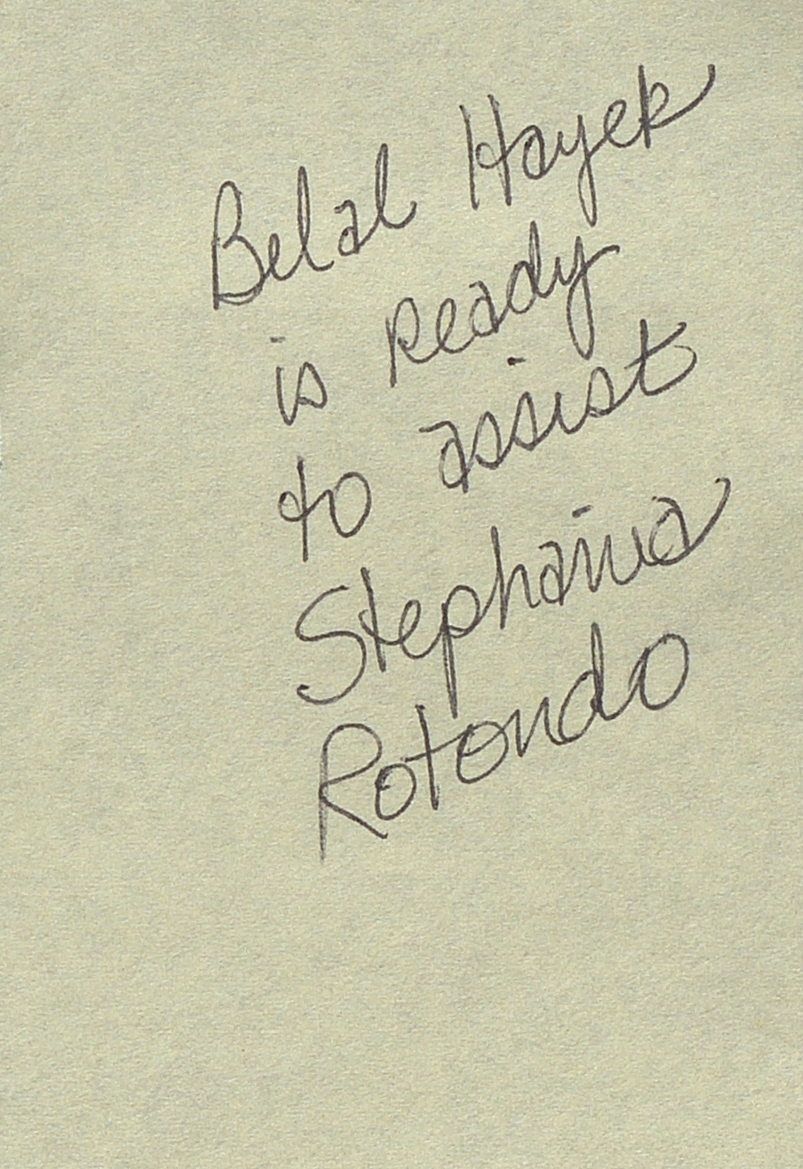 Belal Hayek
is Ready
to assist
Stephania
Rotondo